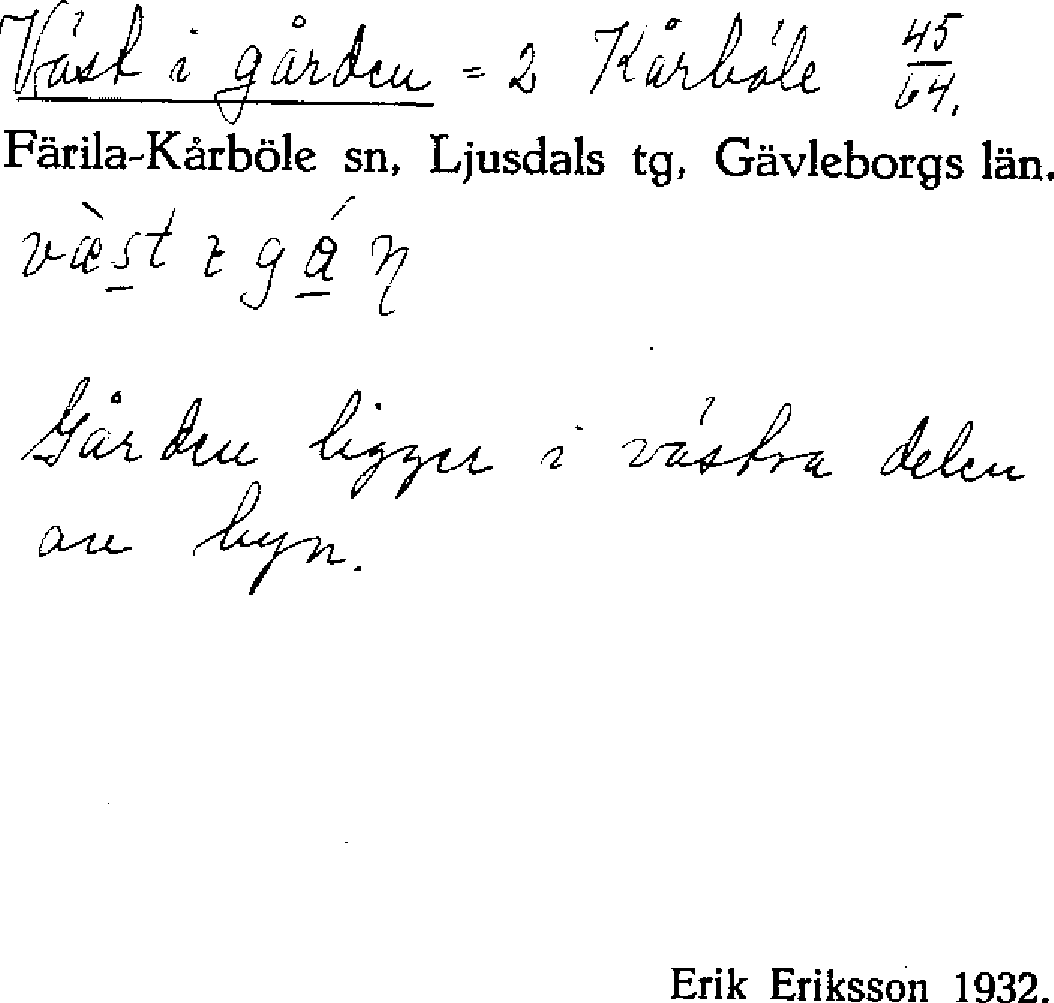 Väst i gården = 2 Kårböle 45/64.
Färila-Kårböle sn, Ljusdals tg, Gävleborgs län.
væ̀st ɩ gá̱ŋ
Gården ligger i västra delen
av byn.
Erik Eriksson 1932.